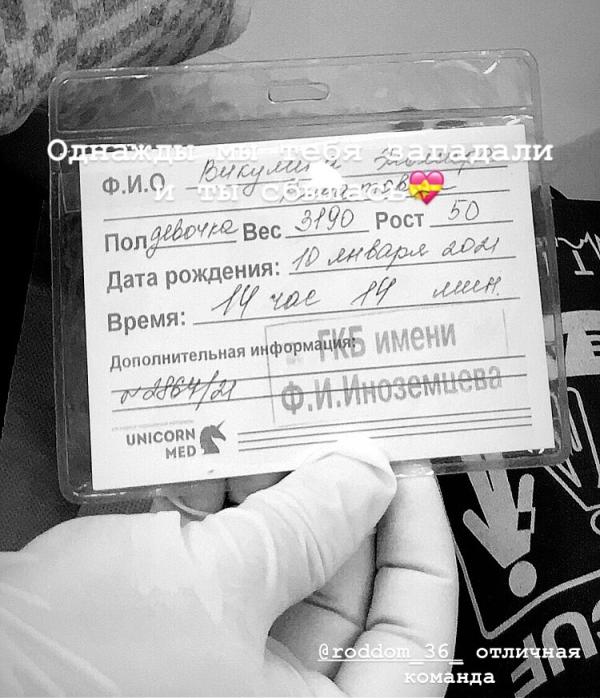 Однажды мы тебя загадали
и ты сбылась💝
Ф.И.О
Пол девочка Вес 3190 Рост 50
Дата рождения: 10 января 2021
Время: 14 час 14 мин.
Дополнительная информация:
№2867/21
ГКБ имени
Ф.И.Иноземцева
UNICORN
MED
@roddom_36_ отличная
команда